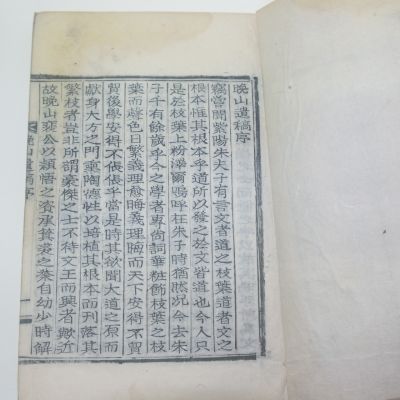 晚山遺稿序
竊嘗聞紫陽朱夫子有言文者道之枝葉道者文之
根本惟其根本乎道所以發之於文皆道也今人只
是於枝葉上粉澤爾嗚呼在朱子時猶然況今去朱
子千有餘歲乎今之學者專尙詞華粧飾枝葉之枝
葉而聲色日繁義理愈晦義理晦而天下安得不貿
貿後學安得不倀倀乎當是時其欲聞大道之原而
獻身大方之門熏陶德性以培植其根本而刊落其
繁枝者豈非所謂豪傑之士不待文王而興者歟近
故晚山裵公以穎悟之資承箕裘之業自幼少時解
晚山遺稿序
一